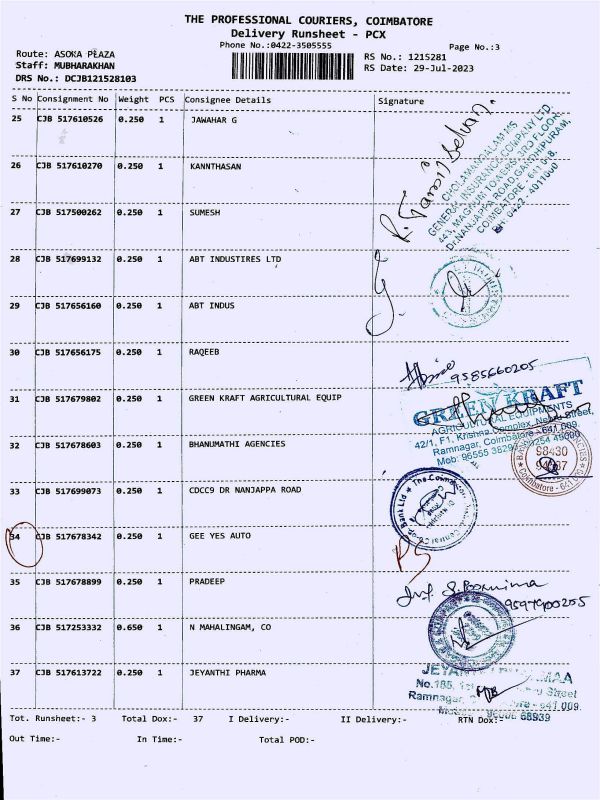 THE PROFESSIONAL COURIERS, COIMBATORE
Delivery Runsheet - PCX
Phone No.:0422-3505555
Page No.:3
Route: ASOKA PLAZA
Staff: MUBHARAKHAN
DRS No.: DCJB121528103
RS No.: 1215281
RS Date: 29-Jul-2023
S No Consignment No Weight PCS Consignee Details Signature
25 CJB 517610526 0.250 1 JAWAHAR G
26 CJB 517610270 0.250 1 KANNTHASAN
27 CJB 517500262 0.250 1 SUMESH
R. Tamil Selvan
CHOLAMANDALAM MS
GENERAL INSURANCE COMPANY LTD.
443, MAGNUM TOWERS, 3RD FLOOR,
Dr.NANJAPPA ROAD, GANDHIPURAM,
COIMBATORE - 641 018.
PH: 0422 - 4011000
28 CJB 517699132 0.250 1 ABT INDUSTIRES LTD
29 CJB 517656160 0.250 1 ABT INDUS
30 CJB 517656175 0.250 1 RAQEEB
9585660205
31 CJB 517679802 0.250 1 GREEN KRAFT AGRICULTURAL EQUIP
GREEN KRAFT
AGRICULTURAL EQUIPMENTS
42/1, F1, Krishna Complex, Street,
Ramnagar, Coimbatore - 641 009.
Mob: 96555 38293, 49090
32 CJB 517678603 0.250 1 BHANUMATHI AGENCIES
98430
Coimbatore - 641
33 CJB 517699073 0.250 1 CDCC9 DR NANJAPPA ROAD
The Coimbatore Central Co-op. Bank Ltd
34 CJB 517678342 0.250 1 GEE YES AUTO
PS
35 CJB 517678899 0.250 1 PRADEEP
S. Poornima
9597900255
36 CJB 517253332 0.650 1 N MAHALINGAM, CO
37 CJB 517613722 0.250 1 JEYANTHI PHARMA
No.185, Street
Ramnagar, - 641 009.
68939
Tot. Runsheet:- 3 Total Dox:- 37 I Delivery:- II Delivery:- RTN Dox:-
Out Time:- In Time:- Total POD:-